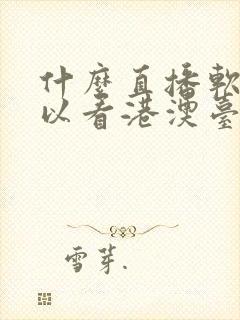 什麼直播軟
以看港澳臺
雪芽.